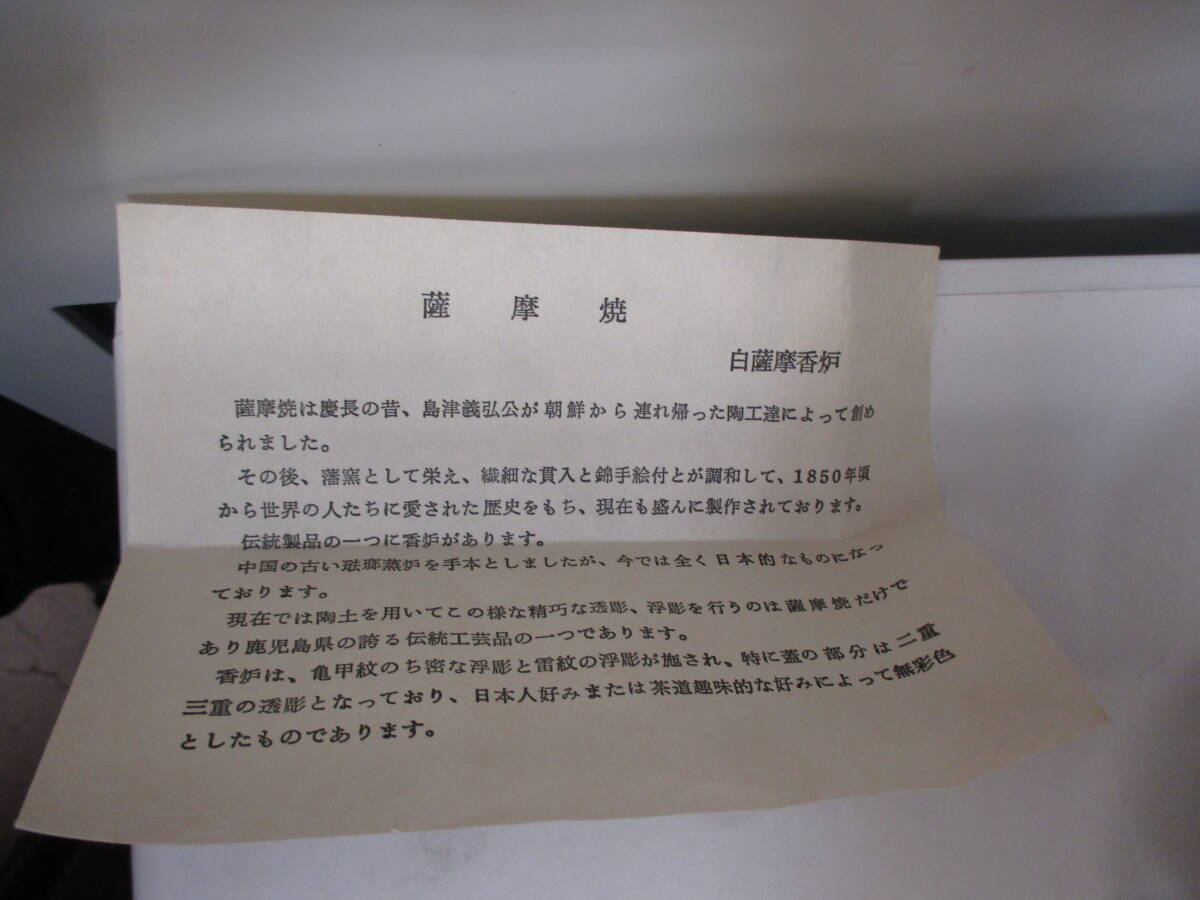 薩摩焼
白薩摩香炉
薩摩焼は慶長の昔、島津義弘公が朝鮮から連れ帰った陶工達によって創め
られました。
その後、藩窯として栄え、繊細な貫入と錦手絵付とが調和して、1850年頃
から世界の人たちに愛された歴史をもち、現在も盛んに製作されております。
伝統製品の一つに香炉があります。
中国の古い琺瑯蒸炉を手本としましたが、今では全く日本的なものになっ
ております。
現在では陶土を用いてこの様な精巧な透彫、浮彫を行うのは薩摩焼だけで
あり鹿児島県の誇る伝統工芸品の一つであります。
香炉は、亀甲紋のち密な浮彫と雷紋の浮彫が施され、特に蓋の部分は二重
三重の透彫となっており、日本人好みまたは茶道趣味的な好みによって無彩色
としたものであります。